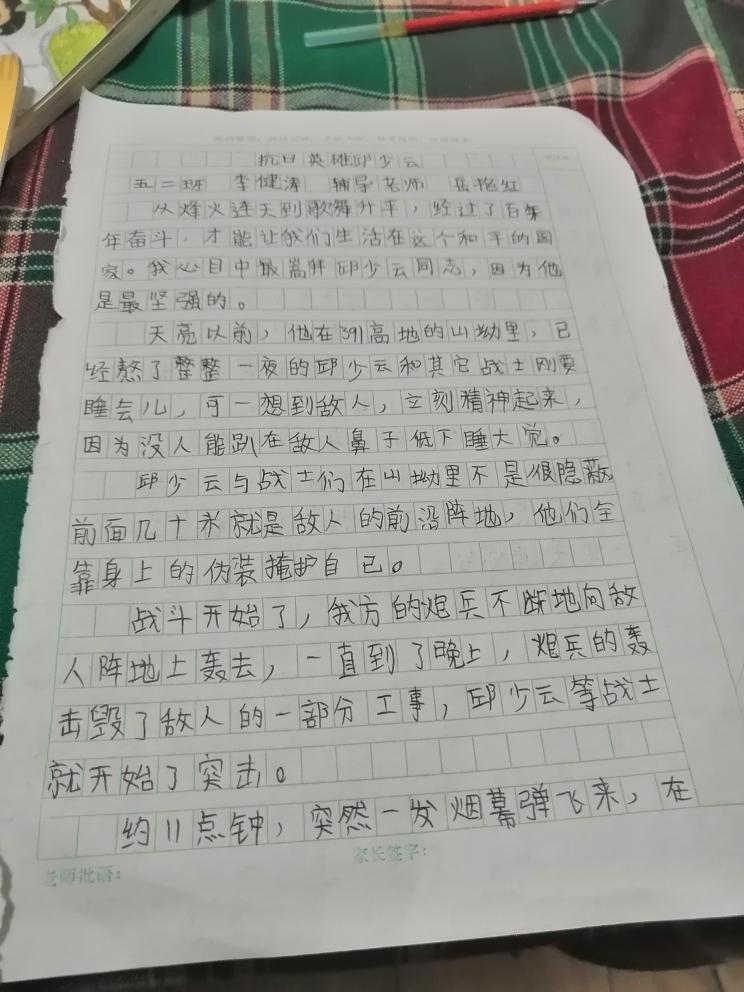 抗日英雄邱少云
五二班 李健涛 辅导老师 岳艳红
从烽火连天到歌舞升平，经过了百年
年奋斗，才能让我们生活在这个和平的国
家。我心目中最崇拜邱少云同志，因为他
是最坚强的。
天亮以前，他在391高地的山坳里，已
经熬了整整一夜的邱少云和其它战士刚要
睡会儿，可一想到敌人，立刻精神起来，
因为没人能趴在敌人鼻子低下睡大觉。
邱少云与战士们在山坳里不是很隐蔽，
前面几十米就是敌人的前沿阵地，他们全
靠身上的伪装掩护自己。
战斗开始了，我方的炮兵不断地向敌
人阵地上轰去，一直到了晚上，炮兵的轰
击毁了敌人的一部分工事，邱少云等战士
就开始了突击。
约11点钟，突然一发烟幕弹飞来，在
老师批语： 家长签字：